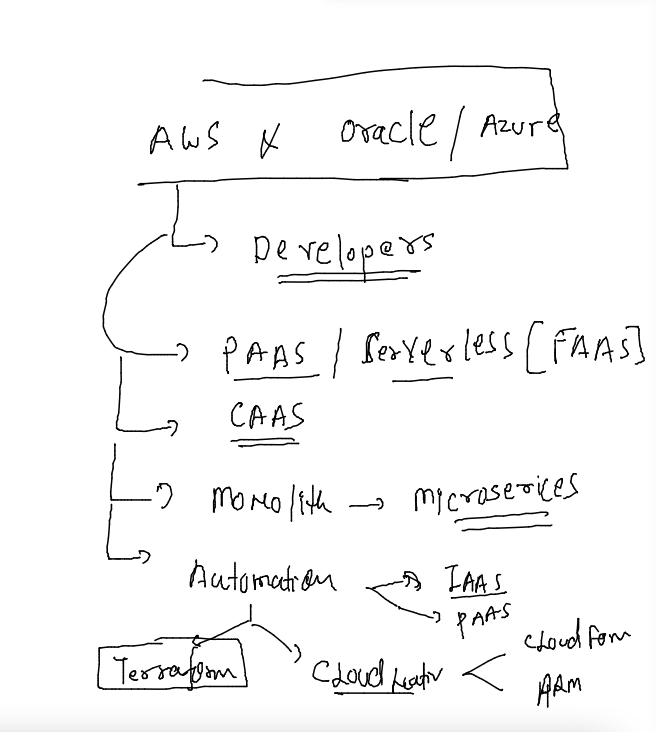 AWS & Oracle / Azure
Developers
PAAS / Serverless [FAAS]
CAAS
Monolith → Microserices
Automation
IAAS
PAAS
Terraform
Cloud Nativ
Cloud Form
ARM